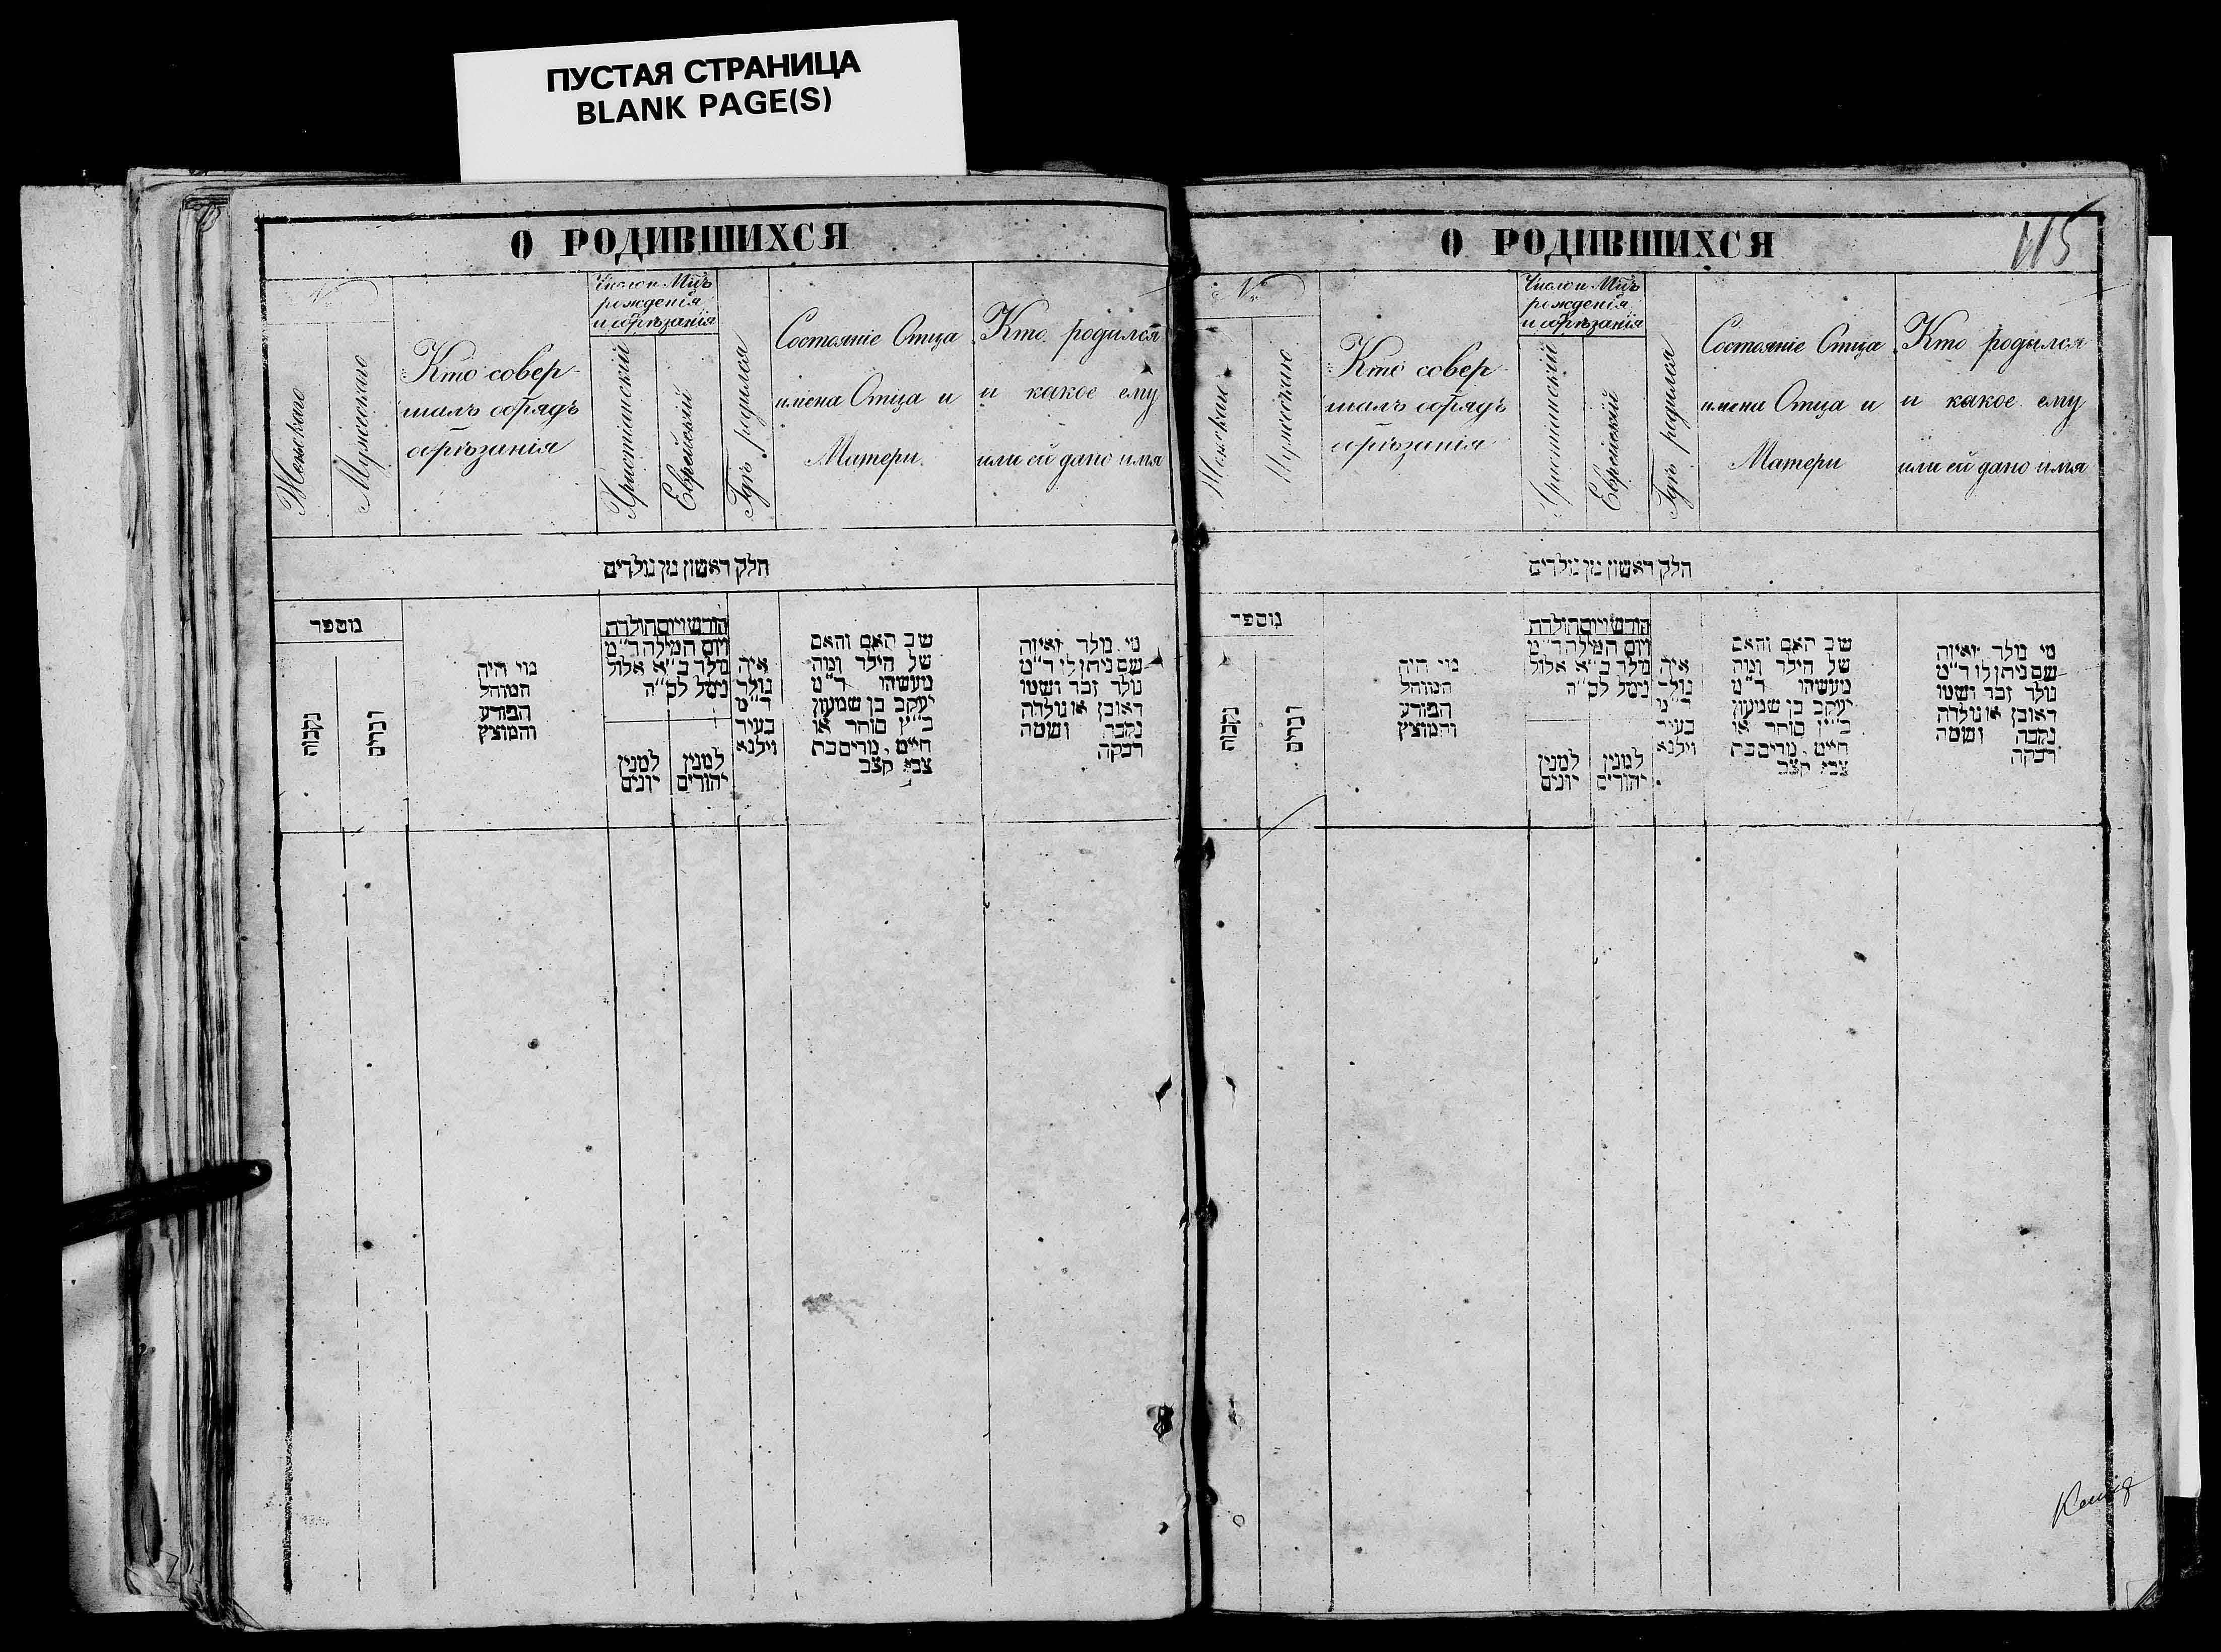 ПУСТАЯ СТРАНИЦА
BLANK PAGE(S)
О РОДИВШИХСЯ
№
Женскаго
Мужескаго
Кто совер-
шалъ обрядъ
обрѣзанія
Число и Мѣс.
рожденія
и обрѣзанія
Христіанскій
Еврейскій
Гдѣ родился
Состояніе Отца
имена Отца и
Матери.
Кто родился
и какое ему
или ей дано имя
חלק ראשון מן נולדים
מספר
נקבות
זכרים
מי היה
המוהל
הפורע
והמוצץ
חודש ויום תולדה
ויום המילה ד"מ
נולד ב"א אלול
נימל לס"ה
למנין
יונים
למנין
יהודים
איה
נולד
ד"מ
בעיר
ווילנא
שב האם והאם
של הילד ומה
מעשהו ד"מ
יעקב בן שמעון
כ"ץ סוחר או
חייט, מרים בת
צבי קצב
מי נולד ואיזה
שם ניתן לו ד"מ
נולד זכר ושמו
ראובן או נולדה
נקבה ושמה
רבקה
О РОДИВШИХСЯ
115
№
Женскаго
Мужескаго
Кто совер-
шалъ обрядъ
обрѣзанія
Число и Мѣс.
рожденія
и обрѣзанія
Христіанскій
Еврейскій
Гдѣ родился
Состояніе Отца
имена Отца и
Матери
Кто родился
и какое ему
или ей дано имя
חלק ראשון מן נולדים
מספר
נקבות
זכרים
מי היה
המוהל
הפורע
והמוצץ
חודש ויום תולדה
ויום המילה ד"מ
נולד ב"א אלול
נימל לס"ה
למנין
יונים
למנין
יהודים
איה
נולד
ד"מ
בעיר
ווילנא
שב האם והאם
של הילד ומה
מעשהו ד"מ
יעקב בן שמעון
כ"ץ סוחר או
חייט, מרים בת
צבי קצב
מי נולד ואיזה
שם ניתן לו ד"מ
נולד זכר ושמו
ראובן או נולדה
נקבה ושמה
רבקה